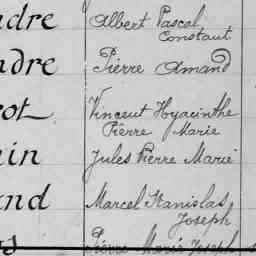 ndre Albert Pascal
Constant
ndre Pierre Amand
rot Vincent Hyacinthe
Pierre Marie
in Jules Pierre Marie
and Marcel Stanislas
Joseph
Pierre Marie Joseph